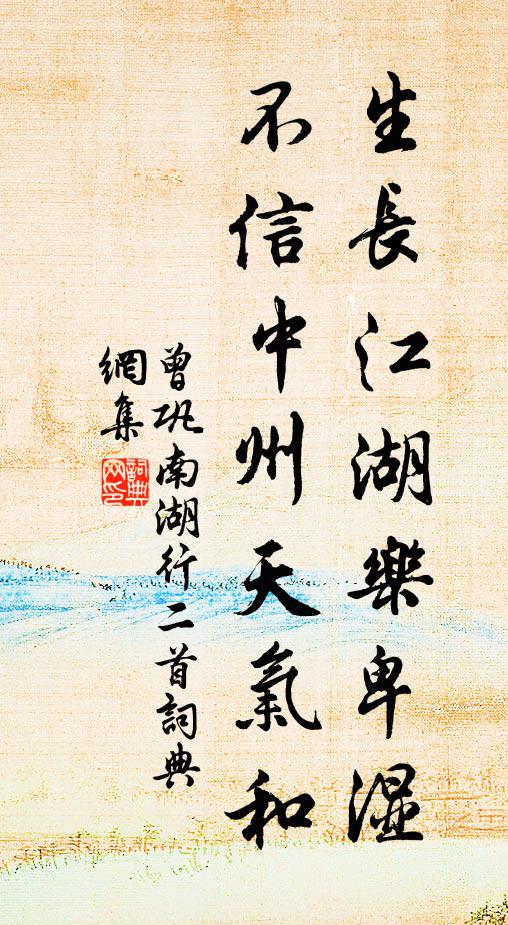 生長江湖樂卑濕
不信中州天氣和
曾巩南湖行二首詞典
網集
詞典
网印